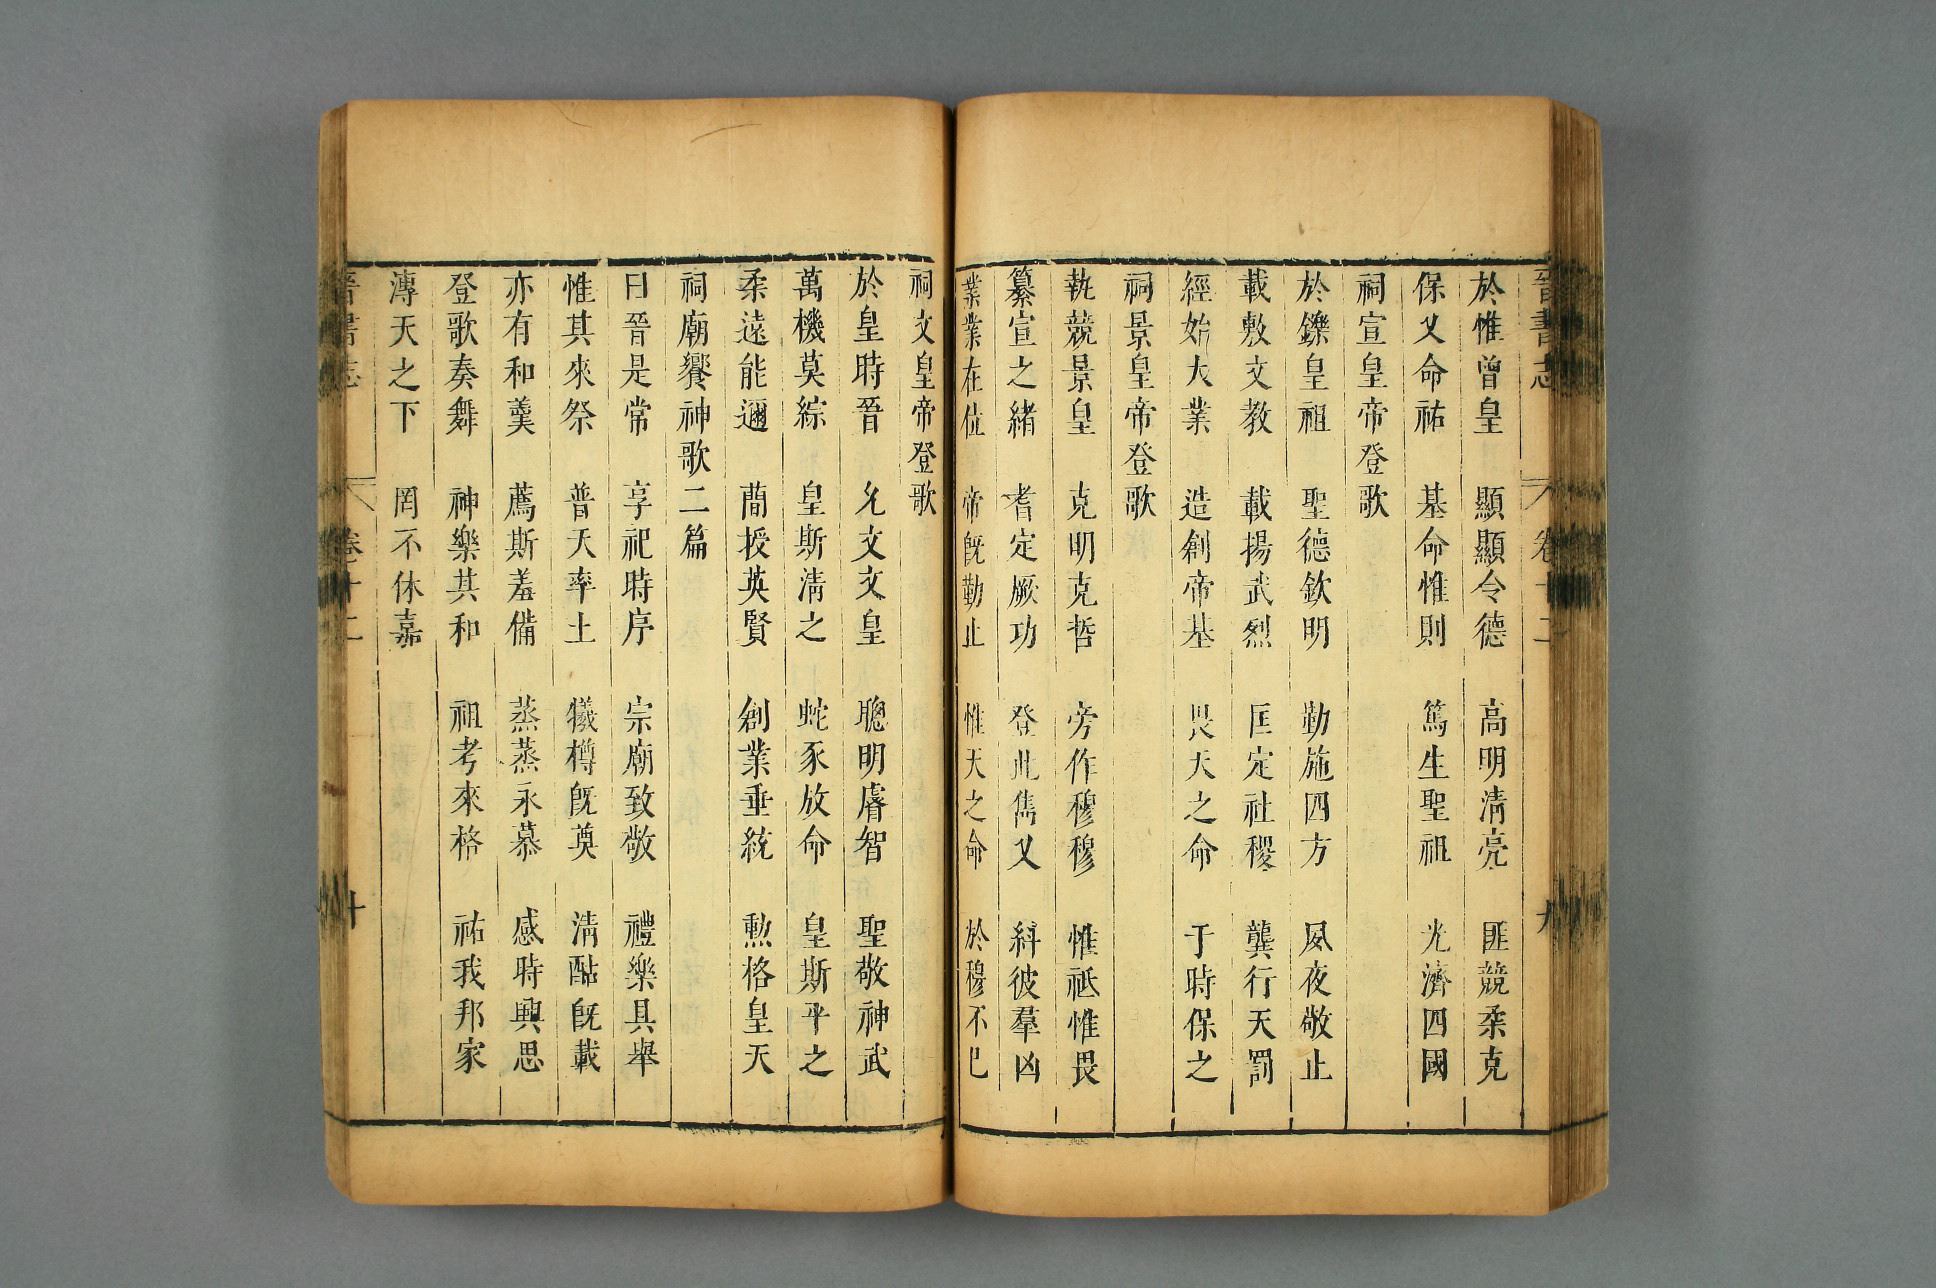 晉書志 卷十二 九
於惟曾皇 顯顯令德 高明清亮 匪競柔克
保乂命祐 基命惟則 篤生聖祖 光濟四國
祠宣皇帝登歌
於鑠皇祖 聖德欽明 勤施四方 夙夜敬止
載敷文教 載揚武烈 匡定社稷 龔行天罰
經始大業 造創帝基 畏天之命 于時保之
祠景皇帝登歌
執競景皇 克明克哲 旁作穆穆 惟祗惟畏
纂宣之緒 耆定厥功 登此雋乂 糾彼羣凶
業業在位 帝旣勤止 惟天之命 於穆不已
祠文皇帝登歌
於皇時晉 允文文皇 聰明膚智 聖敬神武
萬機莫綜 皇斯淸之 蛇豕放命 皇斯平之
柔遠能邇 蕳授英賢 創業垂統 勲格皇天
祠廟饗神歌二篇
曰晉是常 享祀時序 宗廟致敬 禮樂具舉
惟其來祭 普天率土 犧樽旣奠 淸酤旣載
亦有和羹 薦斯羞備 蒸蒸永慕 感時興思
登歌奏舞 神樂其和 祖考來格 祐我邦家
溥天之下 罔不休嘉
晉書志 卷十二 十